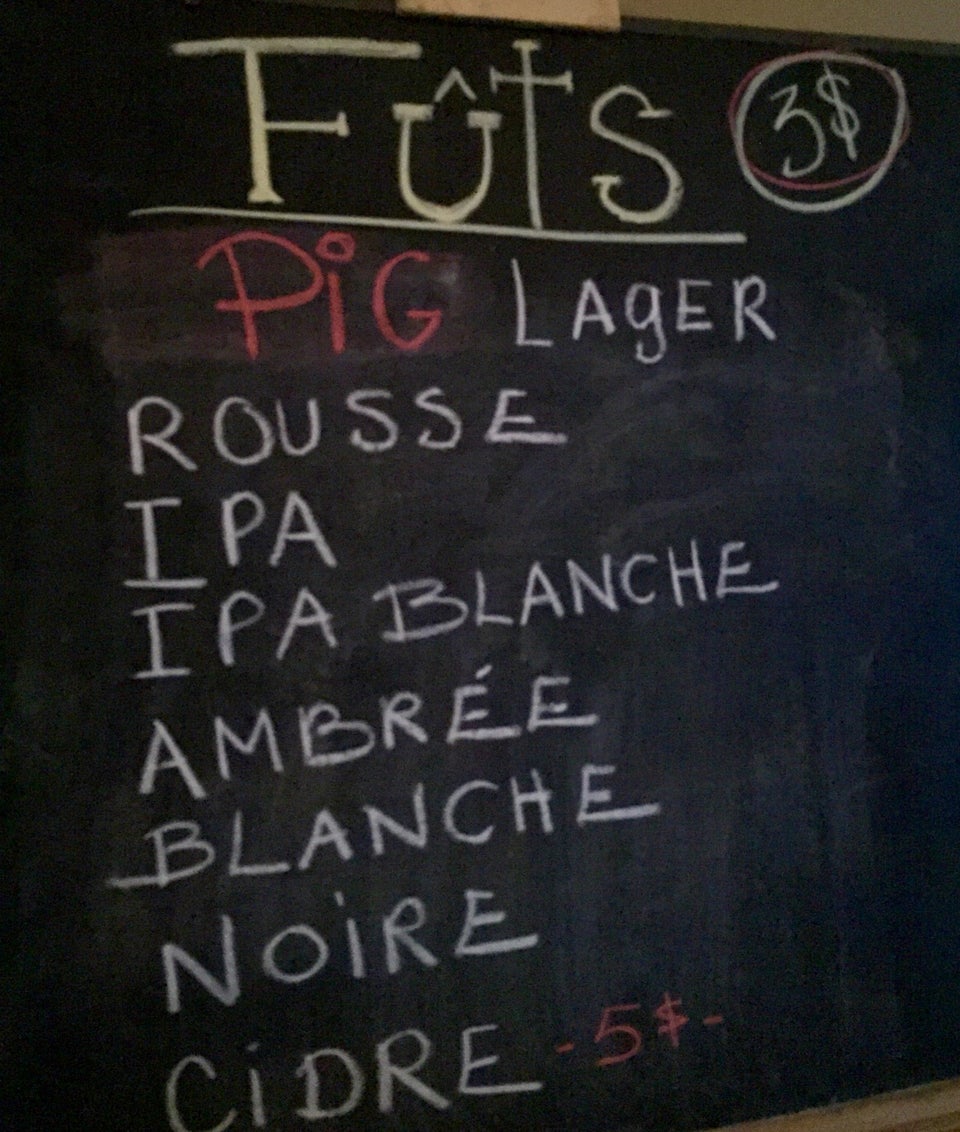 FÛTS 3$
PiG LAgER
ROUSSE
IPA
IPA BLANCHE
AMBRÉE
BLANCHE
NOiRE
CiDRE -5$-